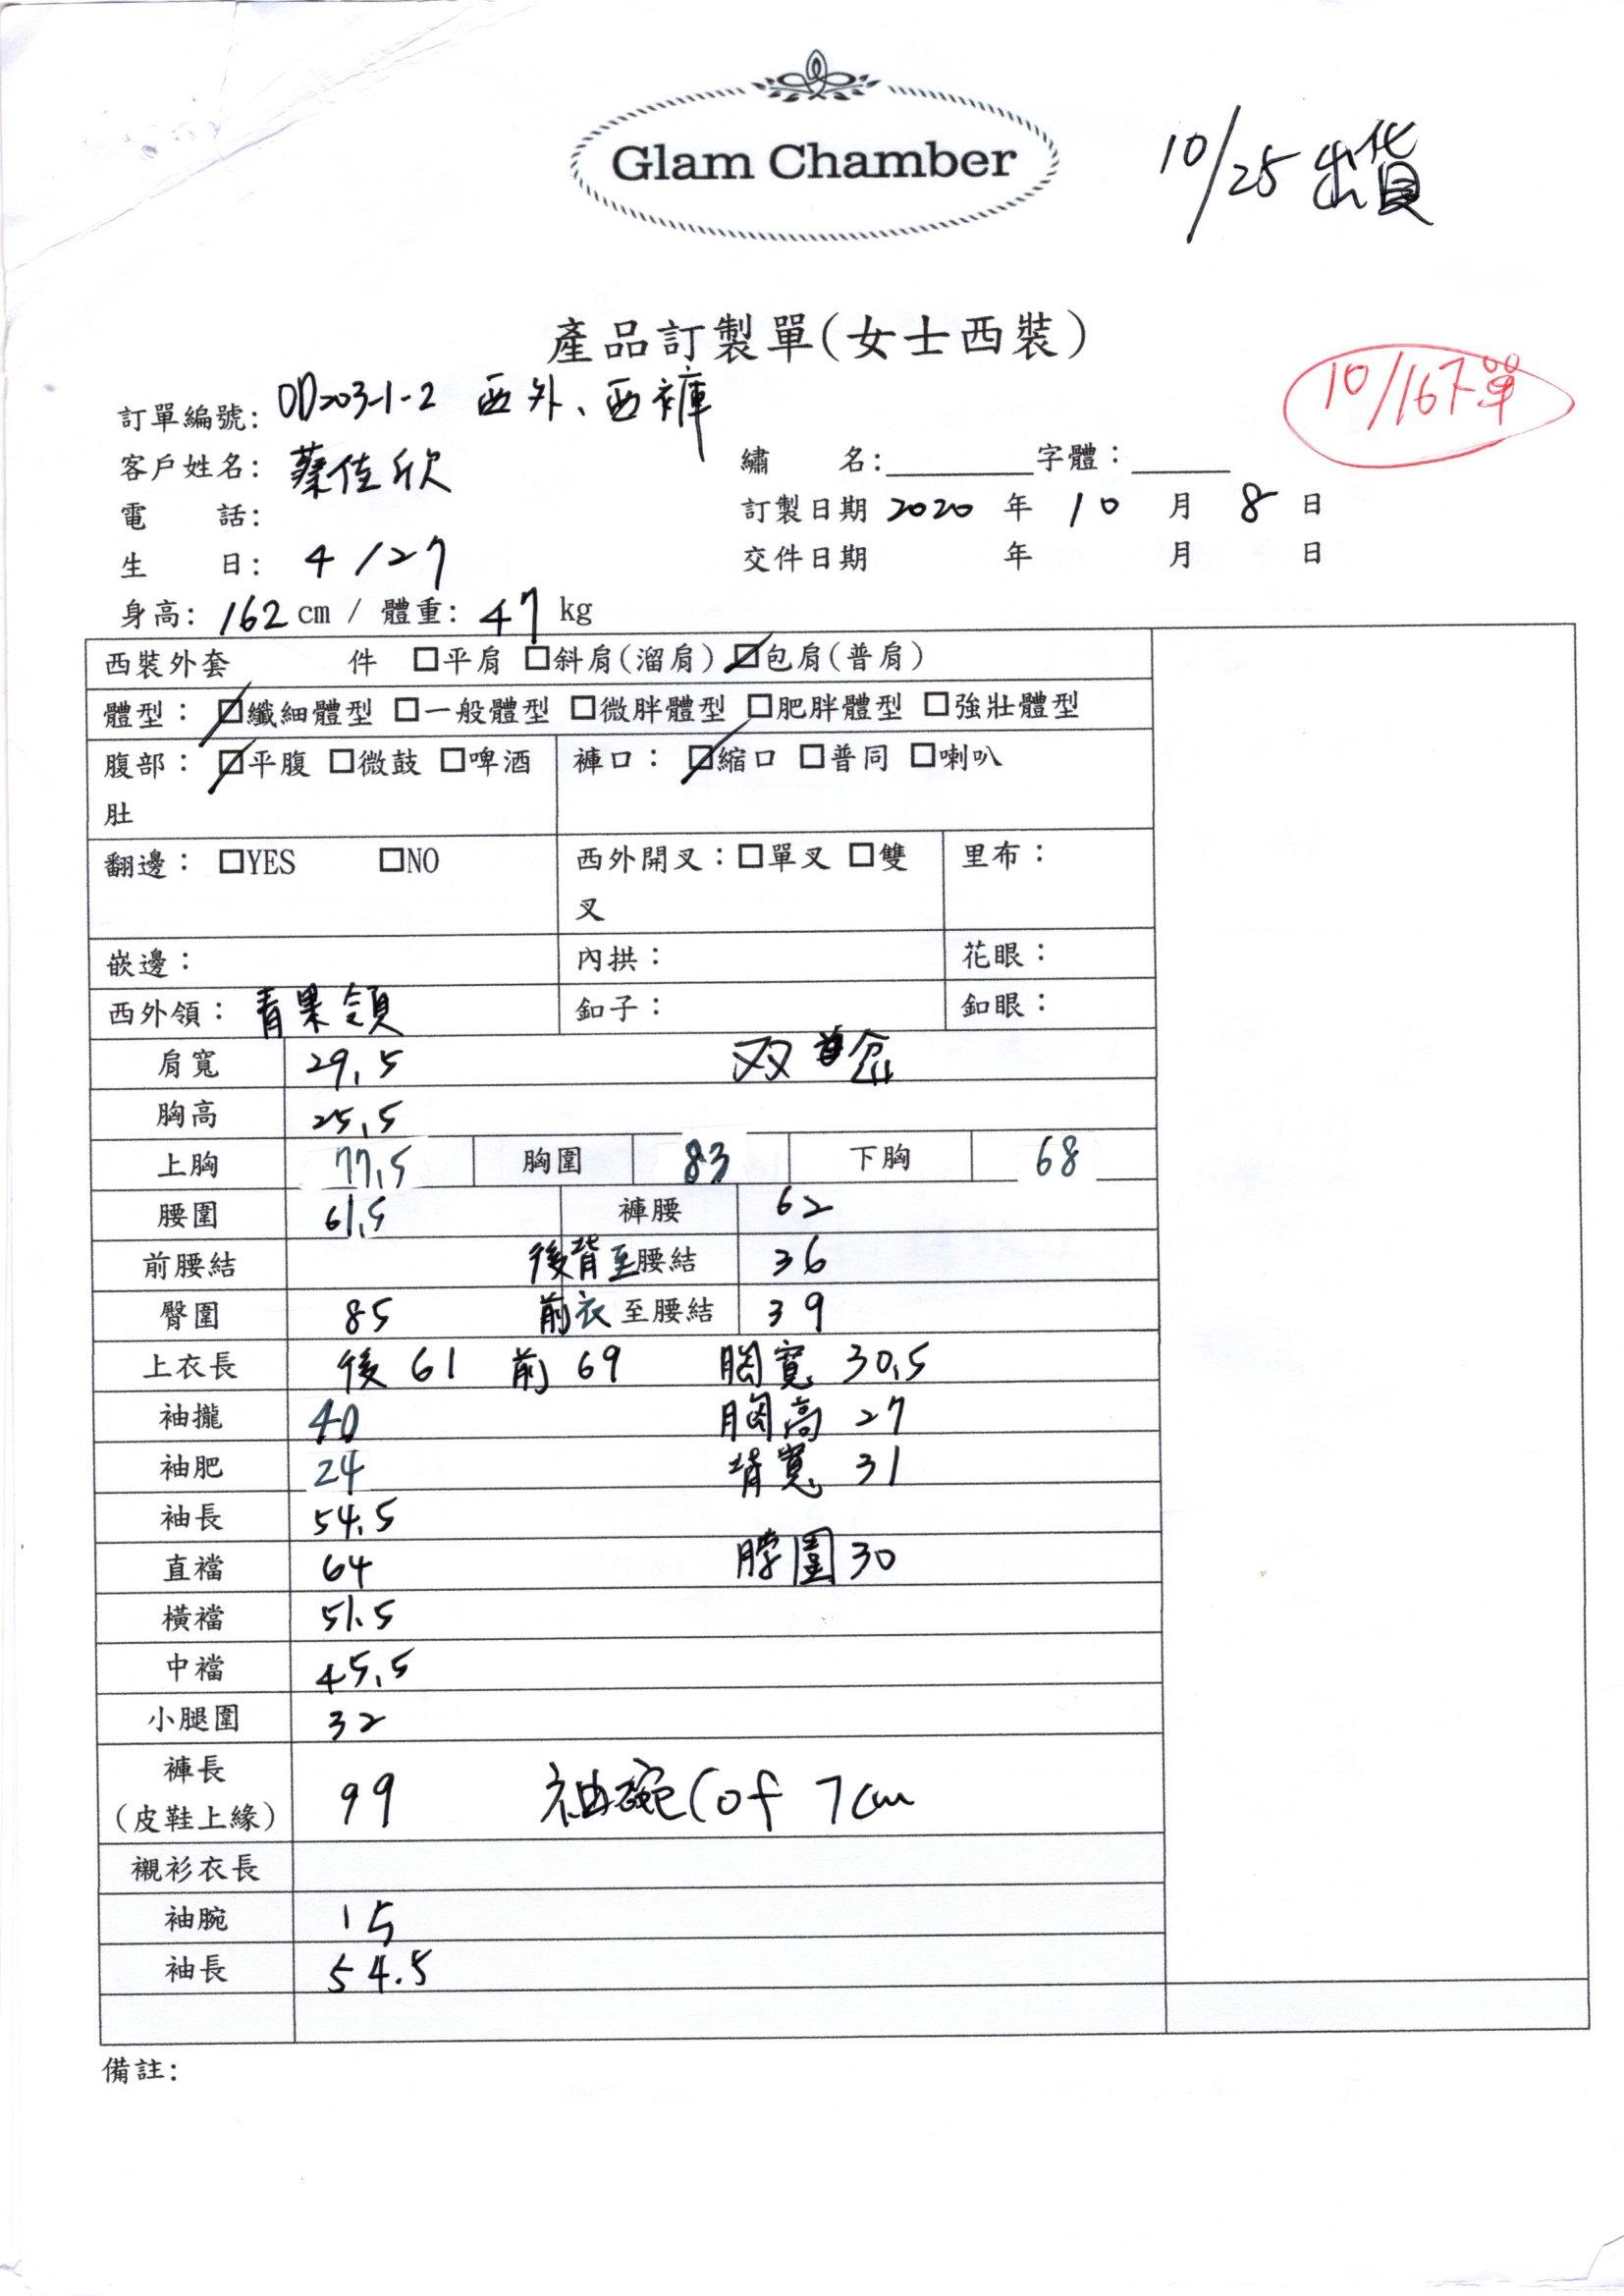 Glam Chamber
10/25 出貨
產品訂製單(女士西裝)
10/16下單
訂單編號: OD203-1-2 西外、西褲
客戶姓名: 蔡佳欣 繡 名: 字體:
電 話: 訂製日期 2020 年 10 月 8 日
生 日: 4/27 交件日期 年 月 日
身高: 162 cm / 體重: 47 kg
西裝外套 件 ☐平肩 ☐斜肩(溜肩) ☑包肩(普肩)
體型: ☑纖細體型 ☐一般體型 ☐微胖體型 ☐肥胖體型 ☐強壯體型
腹部: ☑平腹 ☐微鼓 ☐啤酒肚 褲口: ☑縮口 ☐普同 ☐喇叭
翻邊: ☐YES ☐NO 西外開叉:☐單叉 ☐雙叉 里布:
嵌邊: 內拱: 花眼:
西外領: 青果領 釦子: 釦眼:
肩寬 29.5 双
胸高 25.5
上胸 77.5 胸圍 83 下胸 68
腰圍 61.5 褲腰 62
前腰結 後背至腰結 36
臀圍 85 前衣至腰結 39
上衣長 後 61 前 69 胸寬 30.5
袖攏 40 胸高 27
袖肥 24 背寬 31
袖長 54.5
直襠 64 脖圍 30
橫襠 51.5
中襠 45.5
小腿圍 32
褲長
(皮鞋上緣) 99 袖碗 7cm
襯衫衣長
袖腕 15
袖長 54.5
備註: